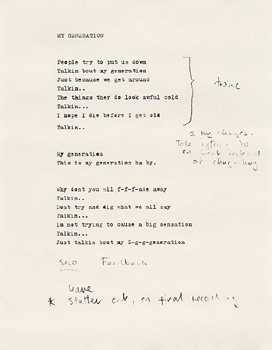 MY GENERATION
People try to put us down
Talkin bout my generation
Just because we get around
Talkin..
The things they do look awful cold
Talkin...
I hope I die before I get old
Talkin..
twice
2 key changes.
Take
on
of chug-chug
My generation
This is my generation ba by.
Why dont you all f-f-f-ade away
Talkin..
Dont try and dig what we all say
Talkin...
Im not trying to cause a big sensation
Talkin...
Just talkin bout my G-g-g-generation
SOLO Feedback
leave
* stutter out, on final recording